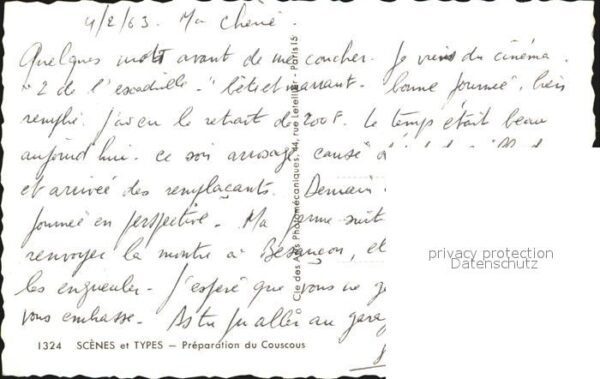 4/2/63. Ma Chérie.
Quelques mots avant de me coucher. Je viens du cinéma.
"2 de l'escadrille". bête et marrant. bonne journée, bien
remplie. j'ai eu le retrait de 200F. Le temps était beau
aujourd'hui. ce soir arrosage causé
et arrivée des remplaçants. Demain
journée en perspective. Ma suit
renvoyer la montre à Besançon, et
les engueuler. J'espère que vous ne
vous embrasse. As tu pu aller au gara
© Cie des Arts Photomécaniques, 44, rue Letellier - Paris 15
privacy protection
Datenschutz
1324 SCÈNES et TYPES — Préparation du Couscous